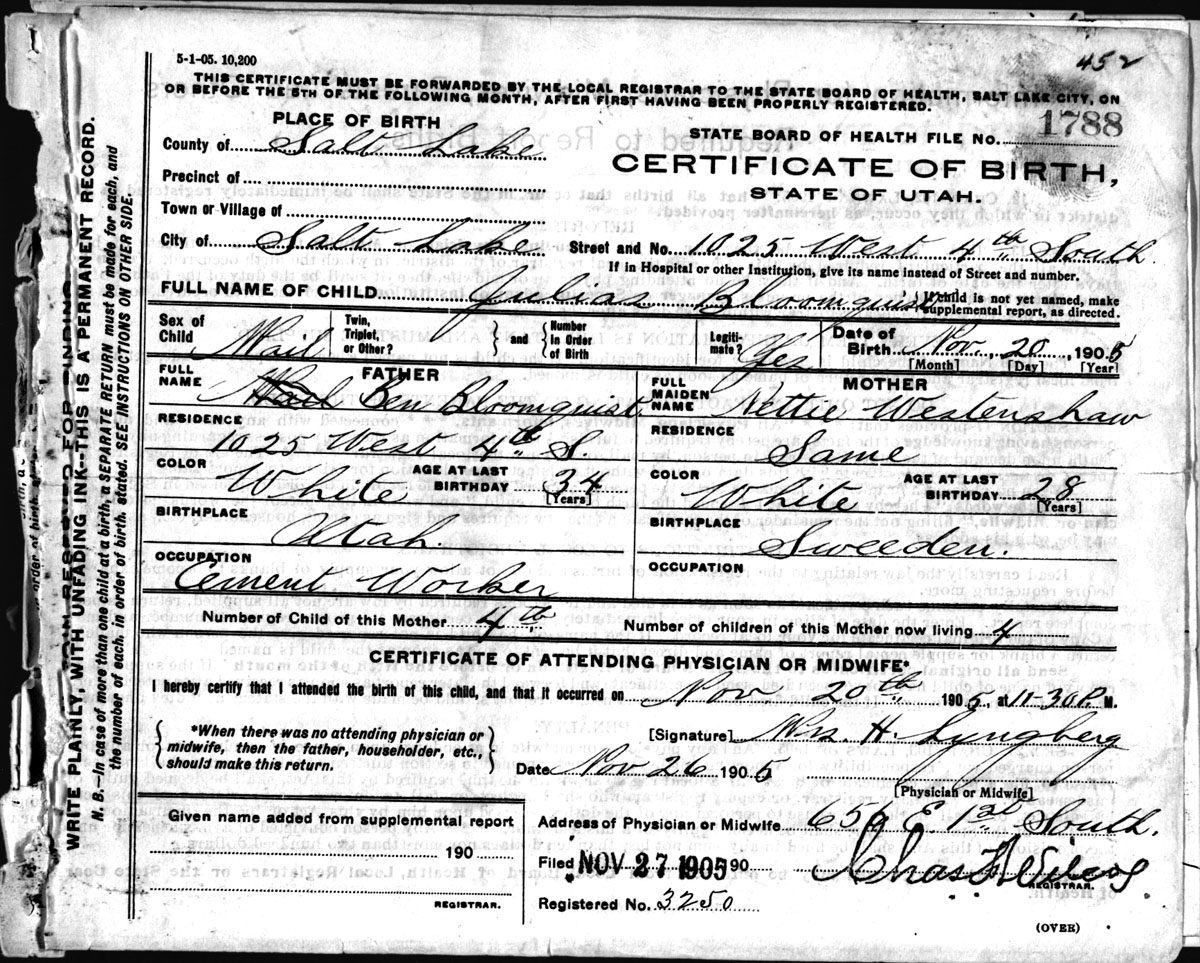 452
5-1-05. 10,200
THIS CERTIFICATE MUST BE FORWARDED BY THE LOCAL REGISTRAR TO THE STATE BOARD OF HEALTH, SALT LAKE CITY, ON
OR BEFORE THE 5TH OF THE FOLLOWING MONTH, AFTER FIRST HAVING BEEN PROPERLY REGISTERED.
PLACE OF BIRTH
STATE BOARD OF HEALTH FILE No. 1788
County of Salt Lake
CERTIFICATE OF BIRTH,
Precinct of
STATE OF UTAH.
Town or Village of
City of Salt Lake Street and No. 1025 West 4th South.
If in Hospital or other Institution, give its name instead of Street and number.
FULL NAME OF CHILD Julias Bloomquist If child is not yet named, make
supplemental report, as directed.
Sex of Child Mail Twin, Triplet, or Other? and Number in Order of Birth Legiti-mate? Yes Date of Birth Nov. 20, 1905
[Month] [Day] [Year]
FULL NAME FATHER Ben Bloomquist
FULL MAIDEN NAME MOTHER Nettie Westenshaw
RESIDENCE 1025 West 4th S.
RESIDENCE Same
COLOR White AGE AT LAST BIRTHDAY 34 [Years]
COLOR White AGE AT LAST BIRTHDAY 28 [Years]
BIRTHPLACE Utah.
BIRTHPLACE Sweeden.
OCCUPATION Cement Worker
OCCUPATION
Number of Child of this Mother 4th Number of children of this Mother now living 4
CERTIFICATE OF ATTENDING PHYSICIAN OR MIDWIFE*
I hereby certify that I attended the birth of this child, and that it occurred on Nov 20th 1905, at 11-30 P. M.
*When there was no attending physician or
midwife, then the father, householder, etc.,
should make this return.
[Signature] Mrs. H. Lyngberg
Date Nov 26 1905
[Physician or Midwife]
Given name added from supplemental report
190
REGISTRAR.
Address of Physician or Midwife 659 E. 1st South.
Filed NOV 27 1905 190
Chas
REGISTRAR.
Registered No. 3250
(OVER)
WRITE PLAINLY, WITH UNFADING INK--THIS IS A PERMANENT RECORD.
N. B.--In case of more than one child at a birth, a SEPARATE RETURN must be made for each, and
the number of each, in order of birth, stated. SEE INSTRUCTIONS ON OTHER SIDE.